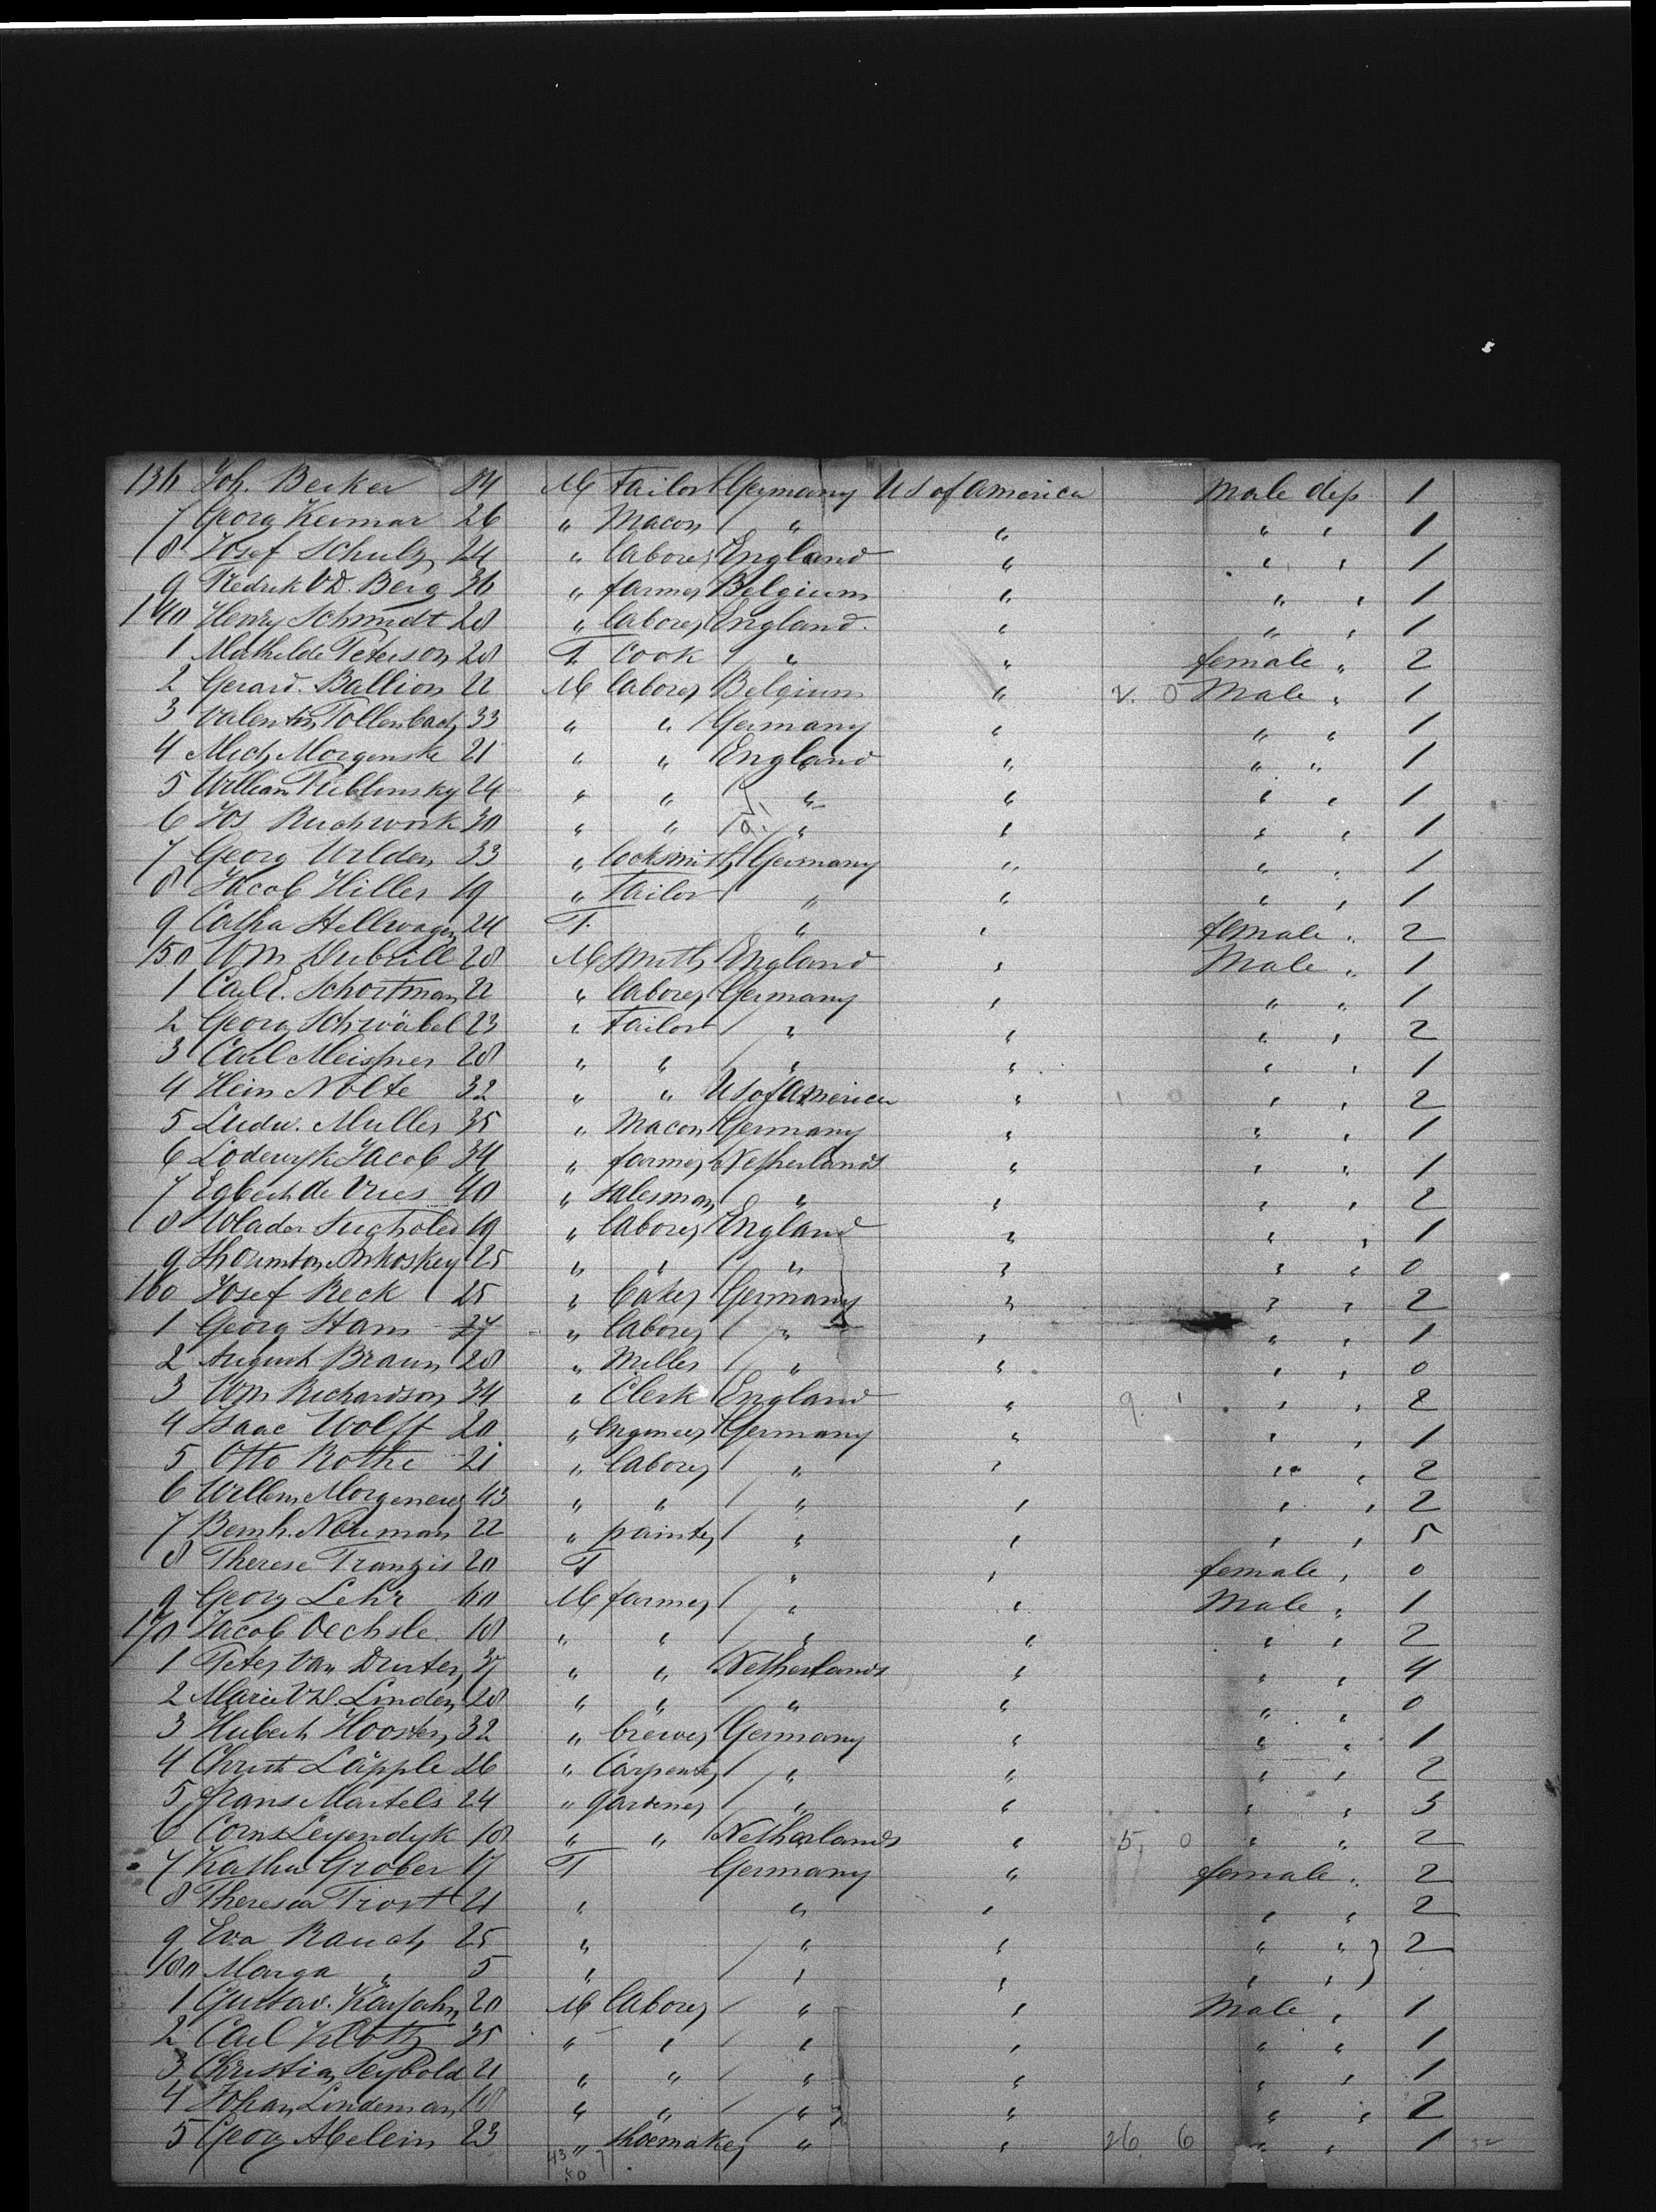 136 Joh. Becker 34 M Tailor Germany US of America Male dep 1
7 Georg Keimar 26 " Macon " " " " 1
8 Josef Schulz 24 " laborer England " " " 1
9 Fredrik VD. Berg 36 " farmer Belgium " " " 1
140 Henry Schmidt 28 " laborer England " " " 1
1 Mathilde Peterson 28 F Cook " " female " 2
2 Gerard. Ballion 22 M laborer Belgium " 2. 0 Male " 1
3 Valentin Tollenbach 33 " " Germany " " " 1
4 Mich Morgenske 21 " " England " " " 1
5 William 24 " " " " " " 1
6 Jos Ruchwork 30 " " " " " " 1
7 Georg Urlden 33 " locksmith Germany " " " 1
8 Jacob Hiller 19 " Tailor " " " " 1
9 Catha Stellwagen 24 F. " " female " 2
150 Wm Dubrill 28 M Smith England " Male " 1
1 Carl Schortman 22 " laborer Germany " " " 1
2 Georg Schwäbel 23 " Tailor " " " " 2
3 Carl Meissner 28 " " " " " " 1
4 Hein Nolte 32 " " US of America " 1 0 " " 2
5 Ludw. Muller 35 " Macon Germany " " " 1
6 Lodewyk Jacob 34 " farmer Netherlands " " " 1
7 Egbert de Vries 40 " salesman " " " " 2
8 19 " laborer England " " " 1
9 25 " " " " " " 0
160 Josef Reck 25 " Baker Germany " " " 2
1 Georg Stam 27 " laborer " " " " 1
2 August Braun 28 " Miller " " " " 0
3 Wm Richardson 34 " Clerk England " 9. 1 " " 2
4 Isaac Wolff 20 " Engineer Germany " " " 1
5 Otto Rothe 21 " laborer " " " " 2
6 Willem 43 " " " " " " 2
7 Bernh. Neuman 22 " painter " " " " 5
8 Therese Franzis 20 F " " female " 0
9 Georg Lehr 60 M farmer " " Male " 1
170 Jacob Oechsle 18 " " " " " " 2
1 Peter Van Druten 37 " " Netherlands " " " 4
2 Marie VD. Linden 28 " " " " " " 0
3 Hubert Hoosten 32 " brewer Germany " " " 1
4 Christ Läpple 26 " Carpenter " " " " 2
5 Frans Martels 24 " gardener " " " " 3
6 Corns Leyendyk 18 " " Netherlands " 5. 0 " " 2
7 Katha Grober 17 F Germany " female " 2
8 Theresia Trost 21 " " " " " 2
9 Eva Rauch 25 " " " " " } 2
180 Marga " 5 " " " " "
1 Gustav. Karjahn 20 M laborer " " Male " 1
2 Carl Klotz 35 " " " " " " 1
3 Christian Seybold 21 " " " " " " 1
4 Johan Lindeman 18 " " " " " " 2
5 Georg Abelein 23 " Shoemaker " " 26 6 " " 1